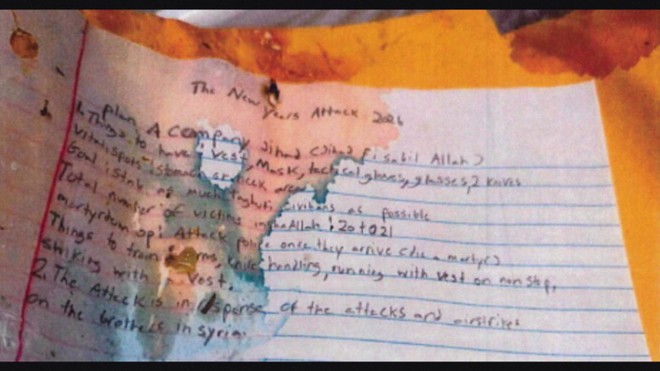 The New Years Attack 2026
1. Plan A Company Jihad (Jihad fi sabil Allah)
Things to have: vest, Mask, tactical gloves, glasses, 2 knives
vital spots: area
Goal: civilians as possible
Total number of victims inshaAllah: 20 to 21
martyrdom op: Attack police once they arrive (die a martyr)
Things to train: knife handling, running with vest on non stop,
striking with vest.
2. The Attack is in response of the attacks and airstrikes
on the brothers in syria.